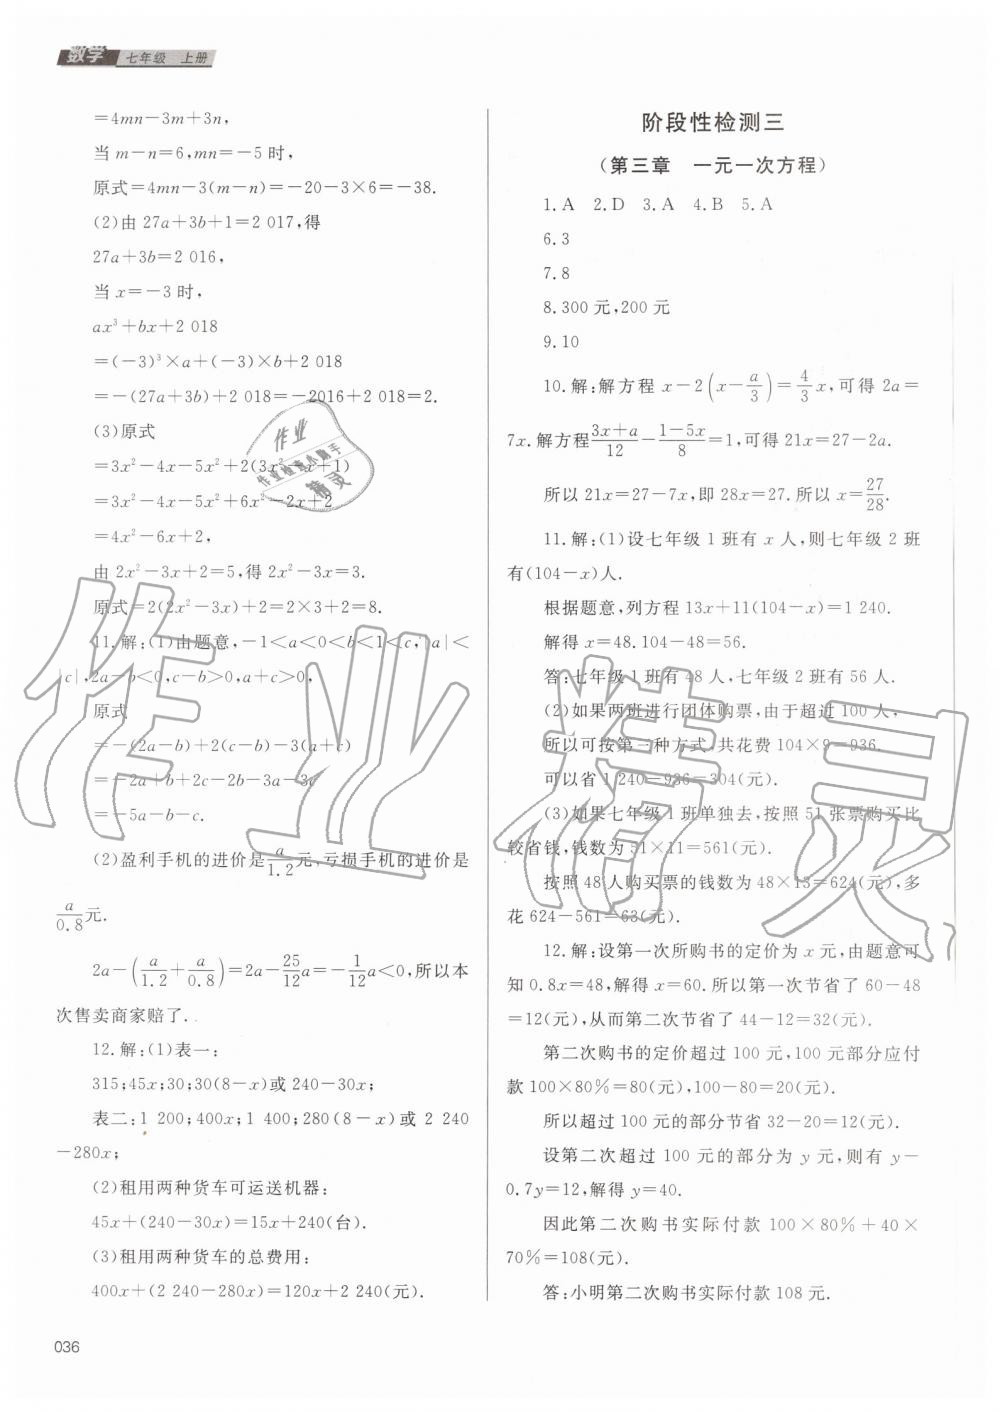 数学 七年级 上册
=4mn-3m+3n,
当 m-n=6,mn=-5 时,
原式=4mn-3(m-n)=-20-3×6=-38.
(2)由 27a+3b+1=2 017,得
27a+3b=2 016,
当 x=-3 时,
ax³+bx+2 018
=(-3)³×a+(-3)×b+2 018
=-(27a+3b)+2 018=-2016+2 018=2.
(3)原式
=3x²-4x-5x²+2(3x²-x+1)
=3x²-4x-5x²+6x²-2x+2
=4x²-6x+2,
由 2x²-3x+2=5,得 2x²-3x=3.
原式=2(2x²-3x)+2=2×3+2=8.
11.解:(1)由题意,-1<a<0<b<1<c,|a|<
|c|,2a-b<0,c-b>0,a+c>0,
原式
=-(2a-b)+2(c-b)-3(a+c)
=-2a+b+2c-2b-3a-3c
=-5a-b-c.
(2)盈利手机的进价是a/1.2元,亏损手机的进价是
a/0.8元.
2a-(a/1.2+a/0.8)=2a-25/12a=-1/12a<0,所以本
次售卖商家赔了.
12.解:(1)表一:
315;45x;30;30(8-x)或 240-30x;
表二:1 200;400x;1 400;280(8-x)或 2 240
-280x;
(2)租用两种货车可运送机器:
45x+(240-30x)=15x+240(台).
(3)租用两种货车的总费用:
400x+(2 240-280x)=120x+2 240(元).
阶段性检测三
(第三章 一元一次方程)
1.A 2.D 3.A 4.B 5.A
6.3
7.8
8.300 元,200 元
9.10
10.解:解方程 x-2(x-a/3)=4/3x,可得 2a=
7x.解方程3x+a/12-1-5x/8=1,可得 21x=27-2a.
所以 21x=27-7x,即 28x=27.所以 x=27/28.
11.解:(1)设七年级 1 班有 x 人,则七年级 2 班
有(104-x)人.
根据题意,列方程 13x+11(104-x)=1 240.
解得 x=48.104-48=56.
答:七年级 1 班有 48 人,七年级 2 班有 56 人.
(2)如果两班进行团体购票,由于超过 100 人,
所以可按第三种方式,共花费 104×9=936.
可以省 1 240-936=304(元).
(3)如果七年级 1 班单独去,按照 51 张票购买比
较省钱,钱数为 51×11=561(元).
按照 48 人购买票的钱数为 48×13=624(元),多
花 624-561=63(元).
12.解:设第一次所购书的定价为 x 元,由题意可
知 0.8x=48,解得 x=60.所以第一次节省了 60-48
=12(元),从而第二次节省了 44-12=32(元).
第二次购书的定价超过 100 元,100 元部分应付
款 100×80%=80(元),100-80=20(元).
所以超过 100 元的部分节省 32-20=12(元).
设第二次超过 100 元的部分为 y 元,则有 y-
0.7y=12,解得 y=40.
因此第二次购书实际付款 100×80%+40×
70%=108(元).
答:小明第二次购书实际付款 108 元.
036
作业
作业检查小助手
精灵
作业精灵